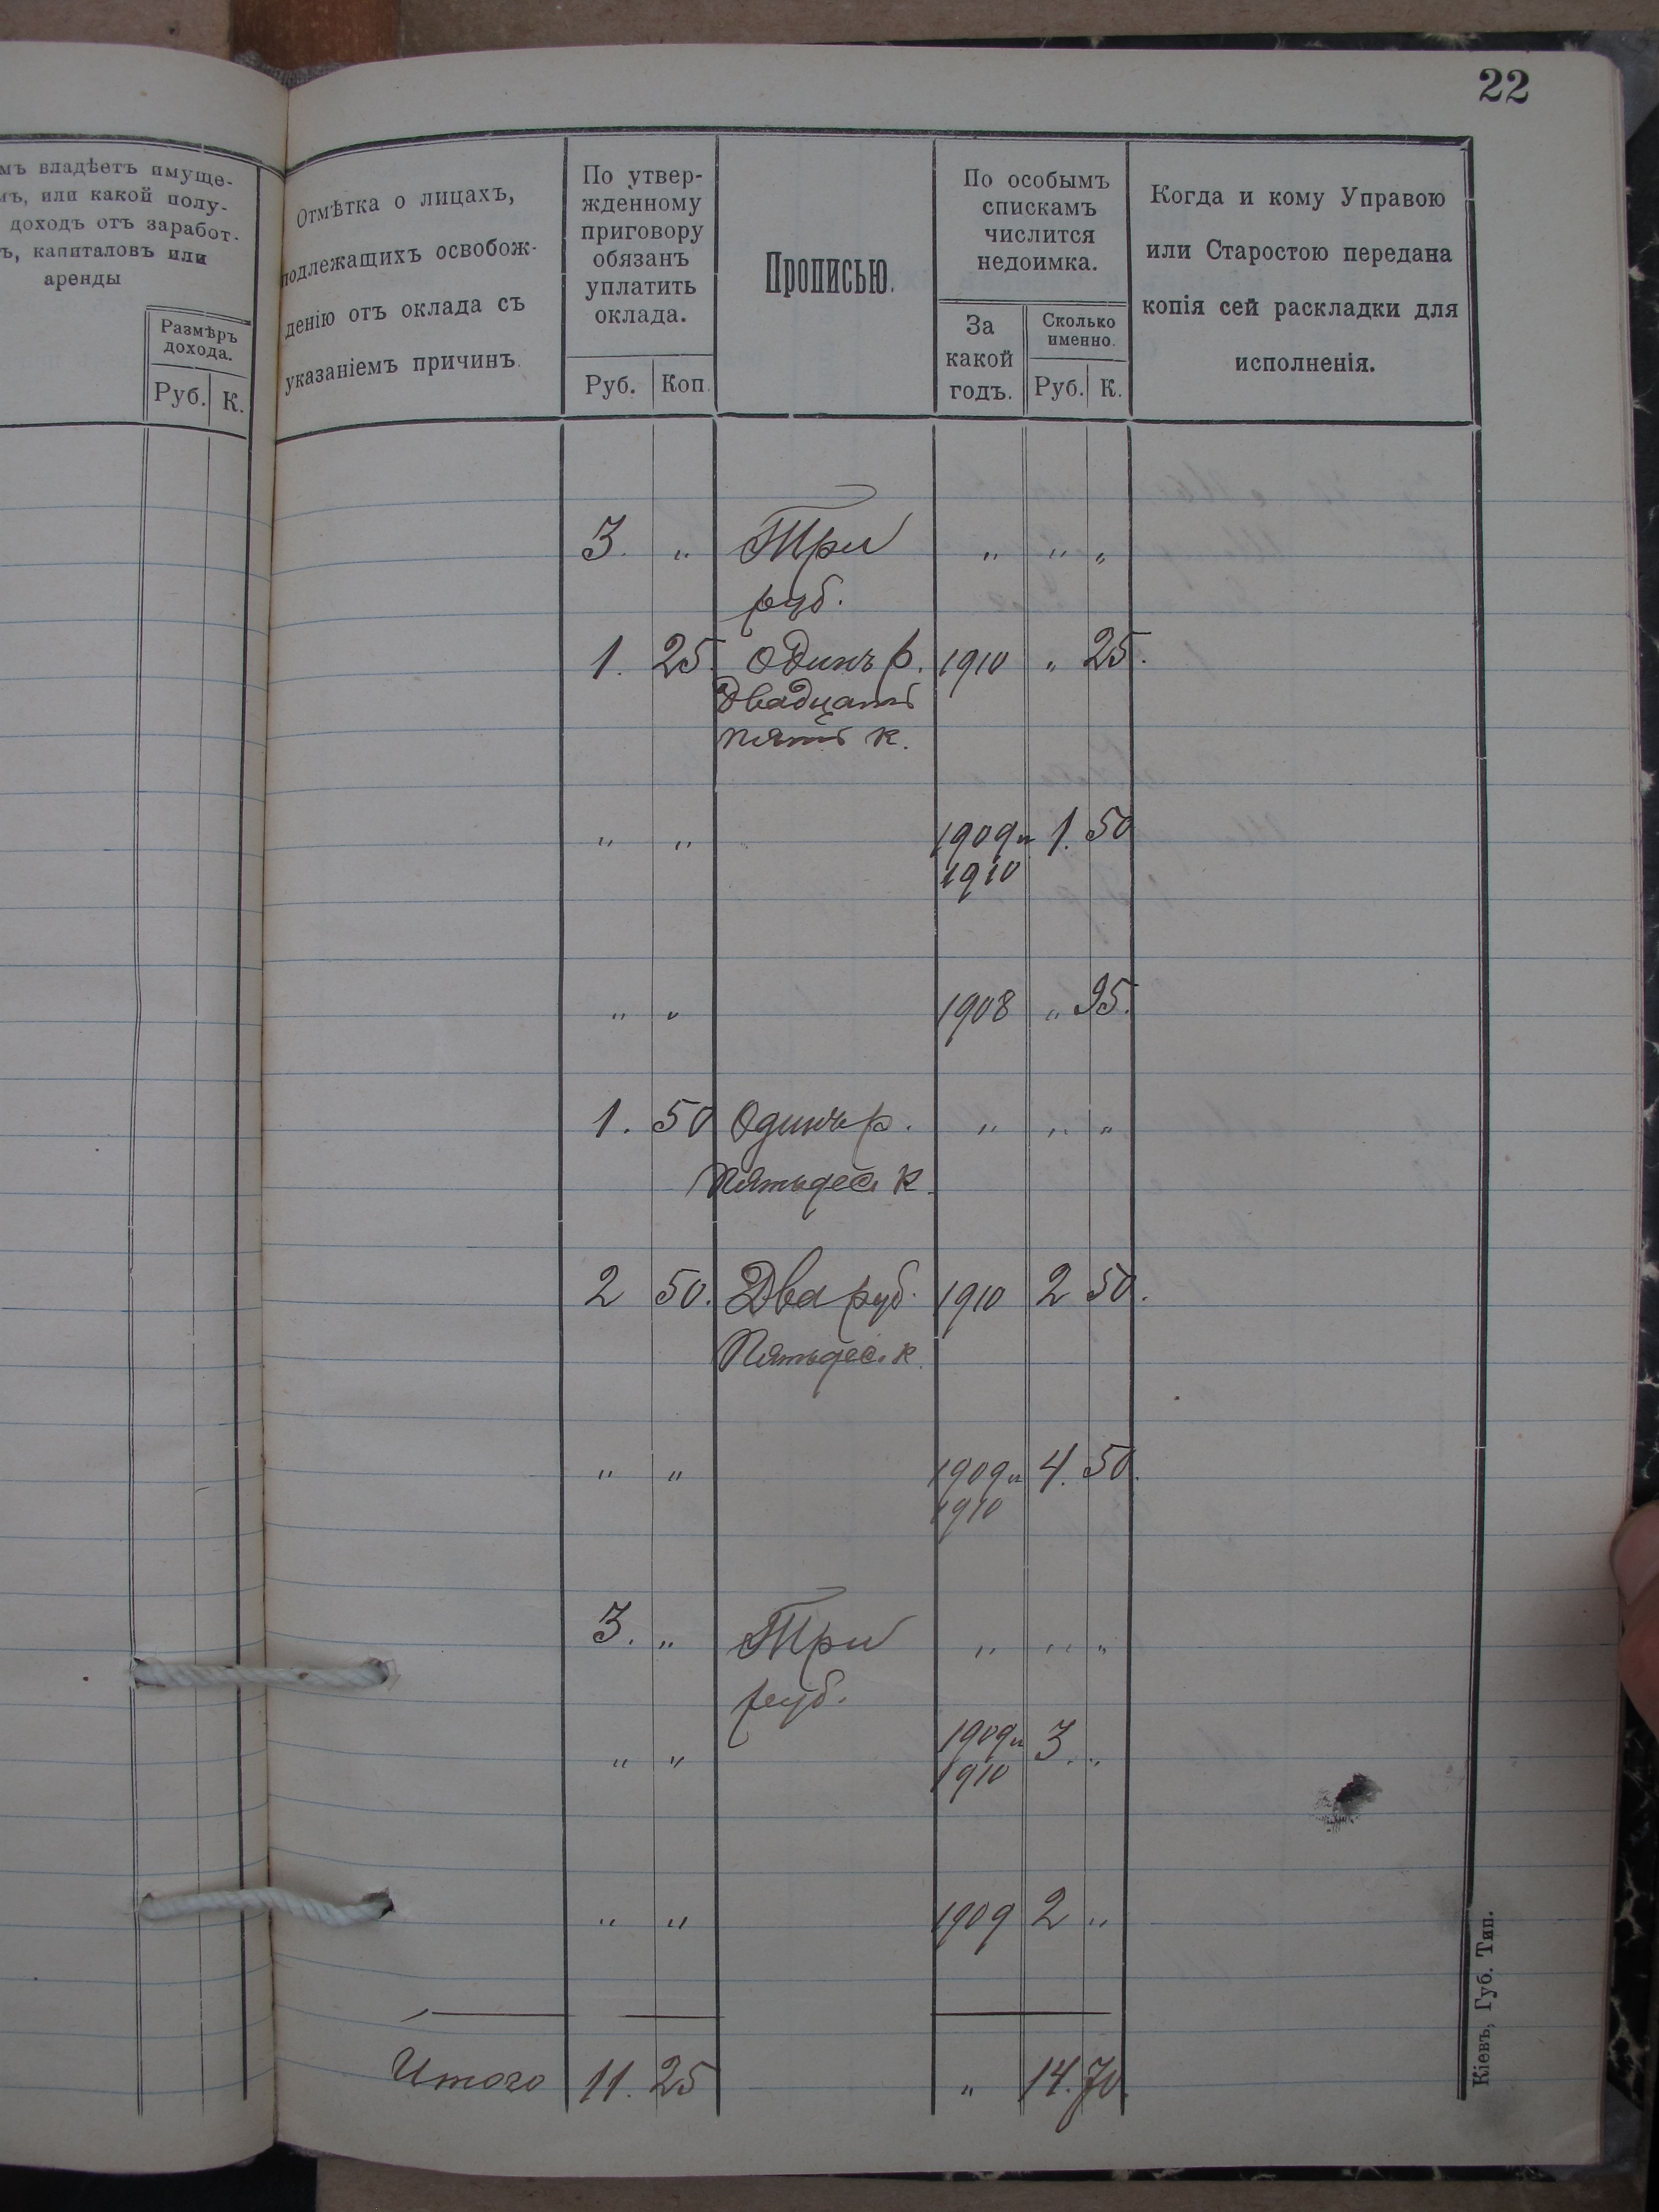 22
мъ владѣетъ имуще-
мъ, или какой полу-
доходъ отъ заработ-
ъ, капиталовъ или
аренды
Размѣръ
дохода.
Руб. К.
Отмѣтка о лицахъ,
подлежащихъ освобож-
денію отъ оклада съ
указаніемъ причинъ.
По утвер-
жденному
приговору
обязанъ
уплатить
оклада.
Руб. Коп.
Прописью.
По особымъ
спискамъ
числится
недоимка.
За
какой
годъ.
Сколько
именно.
Руб. К.
Когда и кому Управою
или Старостою передана
копія сей раскладки для
исполненія.
3. „ Три „ „ „
руб.
1. 25. Одинъ р. 1910 „ 25.
Двадцать
пять к.
„ „ 1909 и 1. 50
1910
„ „ 1908 „ 95.
1. 50 Одинъ р. „ „ „
Пятьдес. к.
2 50. Два руб. 1910 2 50.
Пятьдес. к.
„ „ 1909 и 4. 50.
1910
3. „ Три „ „ „
руб.
„ „ 1909 и 3. „
1910
„ „ 1909 2 „
Итого 11. 25 „ 14. 70.
Кіевъ, Губ. Тип.